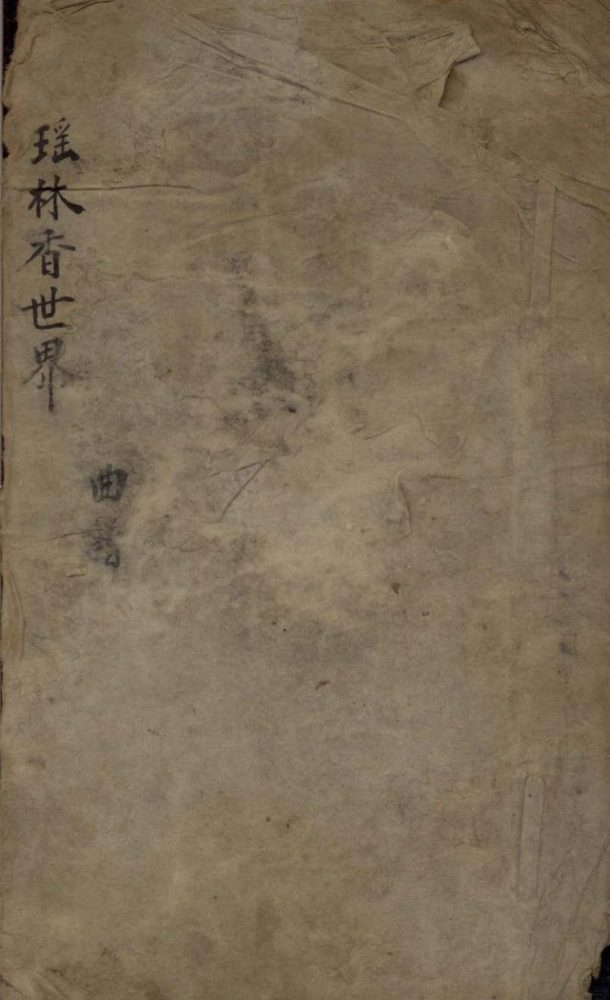 瑶林香世界
曲譜